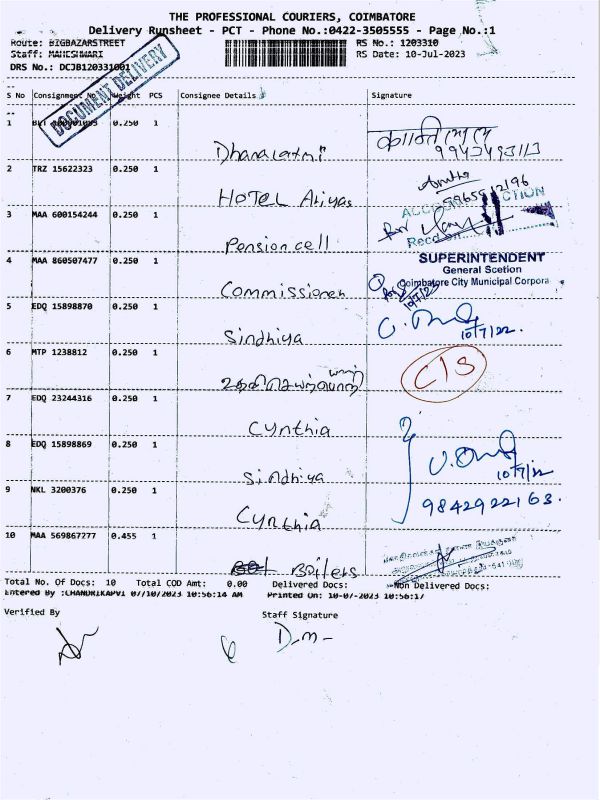 THE PROFESSIONAL COURIERS, COIMBATORE
Delivery Runsheet - PCT - Phone No.:0422-3505555 - Page No.:1
Route: BIGBAZARSTREET RS No.: 1203310
Staff: MAHESHWARI RS Date: 10-Jul-2023
DRS No.: DCJB120331001
DOCUMENT DELIVERY
S No Consignment No Weight PCS Consignee Details Signature
1 0.250 1
Dhanalaxmi
2 TRZ 15622323 0.250 1
HOTEL Ariyas
3 MAA 600154244 0.250 1
Pension cell
4 MAA 860507477 0.250 1
SUPERINTENDENT
General Scetion
Coimbatore City Municipal Corpora
Commissioner
5 EDQ 15898870 0.250 1
Sindhiya 10/7/22.
6 MTP 1238812 0.250 1
C/S
7 EDQ 23244316 0.250 1
Cynthia
8 EDQ 15898869 0.250 1
Sindhiya 10/7/22
9 NKL 3200376 0.250 1
9842922163.
Cynthia
10 MAA 569867277 0.455 1
Boilers
Total No. Of Docs: 10 Total COD Amt: 0.00 Delivered Docs: Non Delivered Docs:
Entered By :CHANDRIKAPVI 07/10/2023 10:56:14 AM Printed On: 10-07-2023 10:56:17
Verified By Staff Signature
D-m-